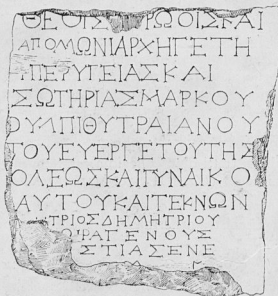 ΘΕΟΙΣ ΡΩΟΙΣΚΑΙ
ΑΠΟΛΛΩΝΙΑΡΧΗΓΕΤΗ
ΥΠΕΡΥΓΕΙΑΣΚΑΙ
ΣΩΤΗΡΙΑΣΜΑΡΚΟΥ
ΟΥΛΠΙΟΥΤΡΑΙΑΝΟΥ
ΤΟΥΕΥΕΡΓΕΤΟΥΤΗΣ
ΟΛΕΩΣΚΑΙΓΥΝΑΙΚΟ
ΑΥΤΟΥΚΑΙΤΕΚΝΩΝ
ΤΡΙΟΣΔΗΜΗΤΡΙΟΥ
ΡΑΓΕΝΟΥΣ
ΣΤΙΑΣΕΝΕ